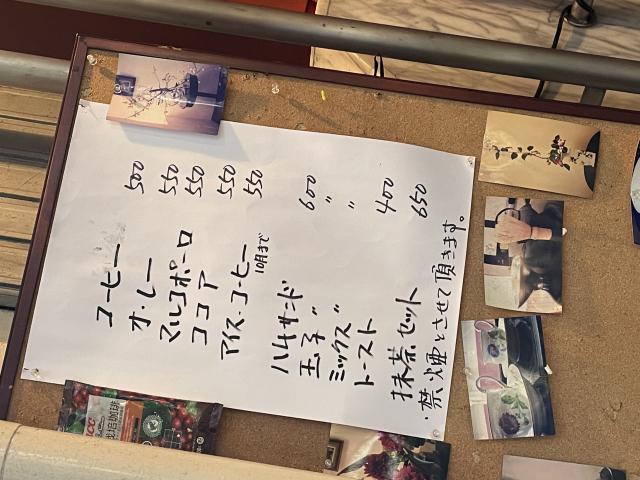 コーヒー 500
オ・レー 550
マルコポーロ 550
ココア 550
アイス・コーヒー 550
10月まで
ハムサンド 600
玉子 〃 〃
ミックス〃 〃
トースト 400
抹茶セット 650
・禁煙とさせて頂きます。